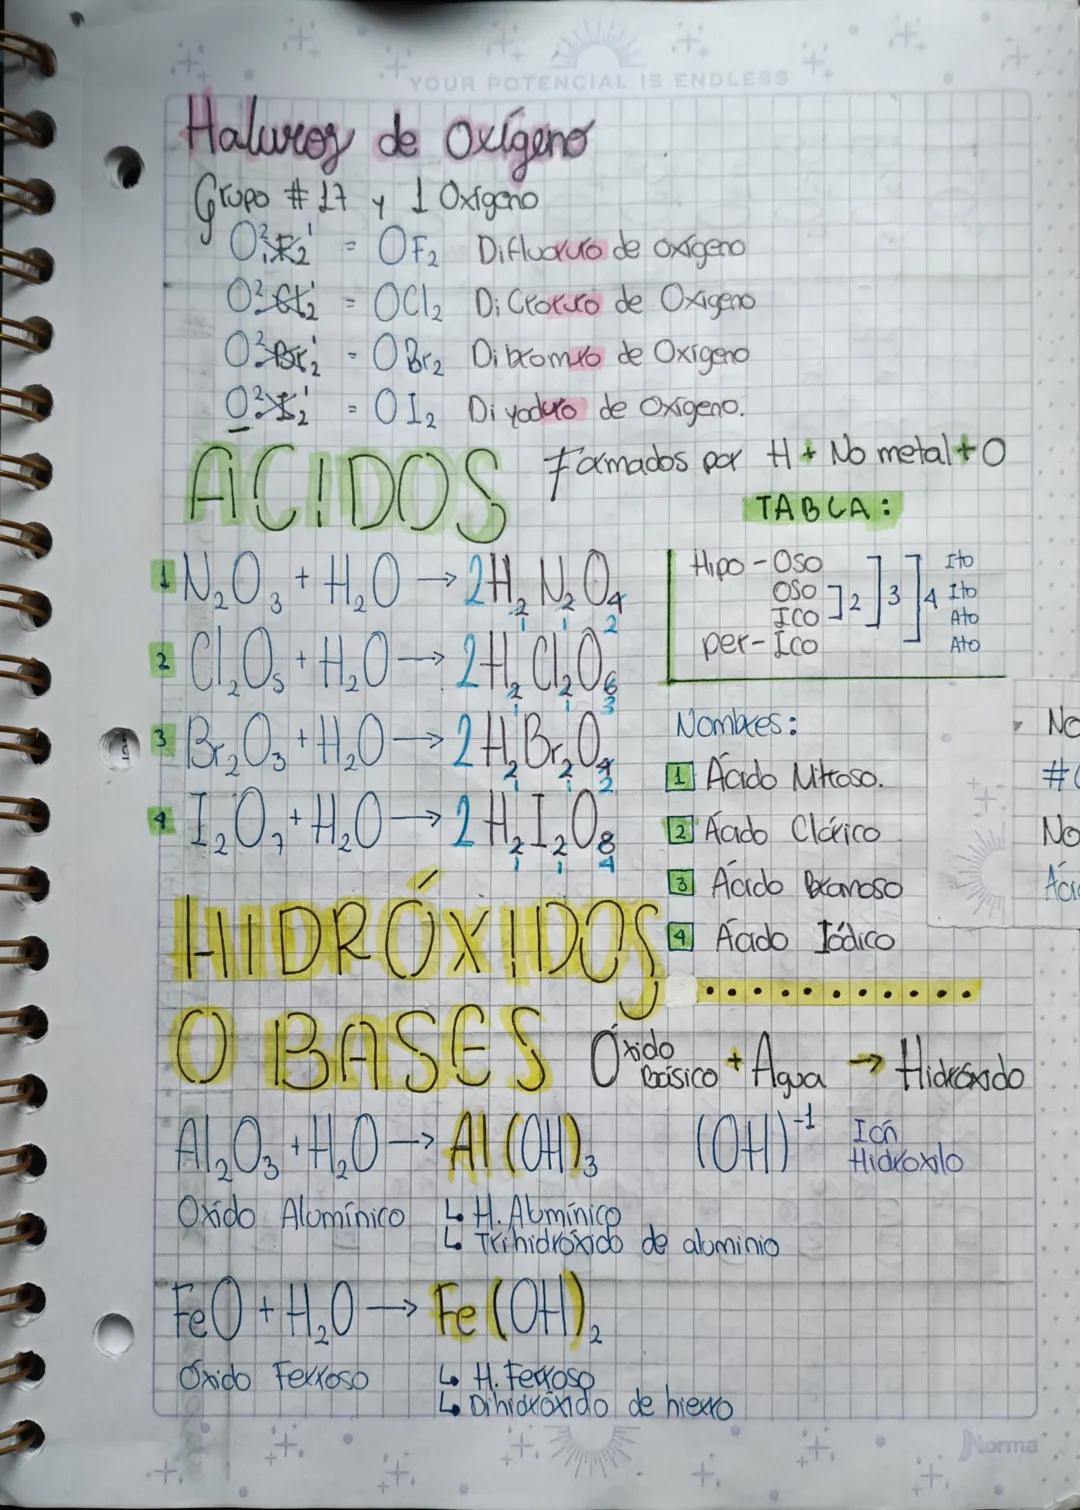 YOUR POTENCIAL IS ENDLESS
Haluros de Oxígeno
Grupo #17 y 1 Oxígeno
O²₁F₂¹ = OF₂ Difluoruro de oxígeno
O²Cl₂¹ = OCl₂ Dicroruro de Oxigeno
O²Br₂¹ = OBr₂ Dibromuro de Oxígeno
O²I₂¹ = OI₂ Diyoduro de Oxígeno.
ACIDOS Formados por H + No metal + O
TABLA:
Hipo - Oso Ito
Oso ]2 ]3 ]4 Ito
Ico Ato
per - Ico Ato
1 N₂O₃ + H₂O → 2H₂N₂O₄
1 1 2
2 Cl₂O₅ + H₂O → 2H₂Cl₂O₆
1 1 3
3 Br₂O₃ + H₂O → 2H₂Br₂O₄
1 1 2
4 I₂O₇ + H₂O → 2H₂I₂O₈
1 1 4
Nombres:
1 Ácido Nitroso.
2 Ácido Clórico
3 Ácido Bromoso
4 Ácido Iódico
No
#
No
HIDRÓXIDOS
O BASES Óxido Básico + Agua → Hidróxido
Al₂O₃ + H₂O → Al(OH)₃ (OH)⁻¹ Ión Hidroxilo
Oxido Alumínico ↳ H. Alumínico
↳ Trihidróxido de aluminio
FeO + H₂O → Fe(OH)₂
Óxido Ferroso ↳ H. Ferroso
↳ Dihidróxido de hierro
Norma